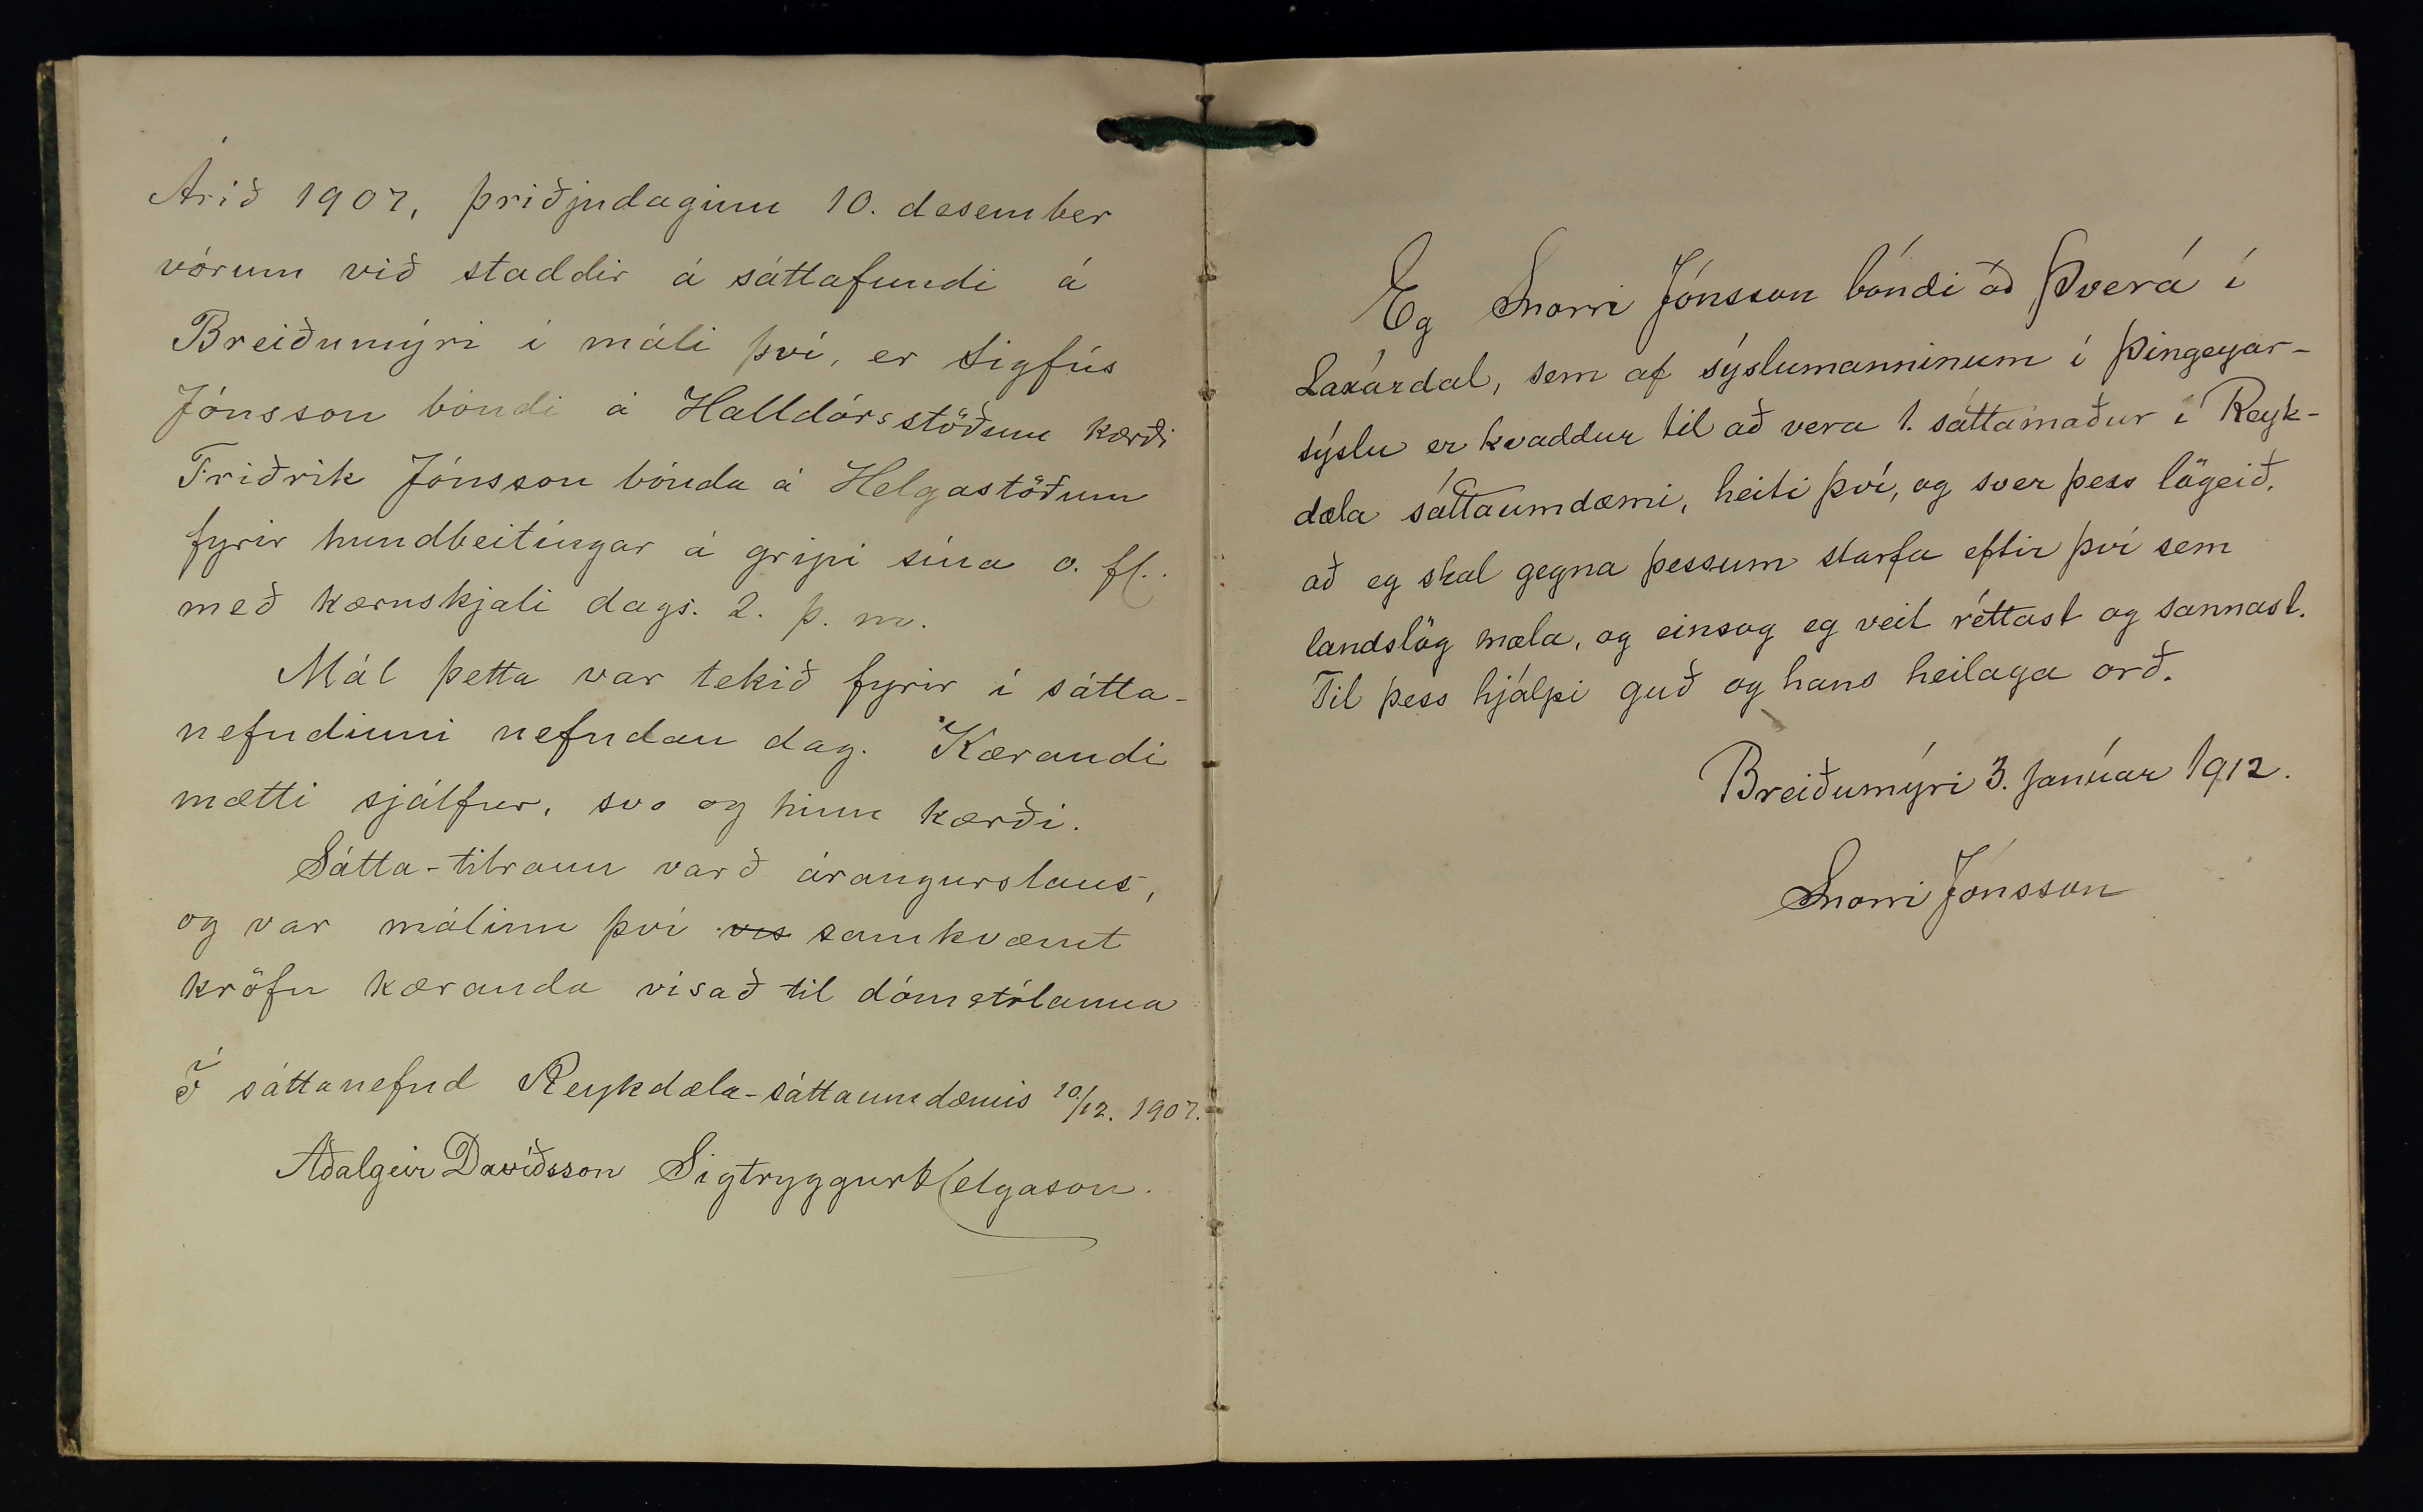 Árið 1907, þriðjudaginn 10. desember
vórum við staddir á sáttafundi á
Breiðumýri í máli því, er Sigfús
Jónsson bóndi á Halldórsstöðum kærði
Friðrik Jónsson bónda á Helgastöðum
fyrir hundbeitingar á gripi sína o. fl.
með kæruskjali dags. 2. þ. m.
Mál þetta var tekið fyrir í sátta-
nefndinni nefndan dag. Kærandi
mætti sjálfur, svo og hinn kærði.
Sátta-tilraun varð árangurslaus,
og var málinu því vis samkvæmt
kröfu kæranda vísað til dómstólanna
Í sáttanefnd Reykdæla-sáttaumdæmis 10/12. 1907.
Aðalgeir Davíðsson Sigtryggur Helgason.
Eg Snorri Jónsson bóndi að Þverá í
Laxárdal, sem af sýslumanninum í Þingeyar-
sýslu er kvaddur til að vera 1. sáttamaður í Reyk-
dæla sáttaumdæmi, heiti því, og sver þess lögeið,
að eg skal gegna þessum starfa eftir því sem
landslög mæla, og einsog eg veit réttast og sannast.
Til þess hjálpi guð og hans heilaga orð.
Breiðumýri 3. janúar 1912.
Snorri Jónsson